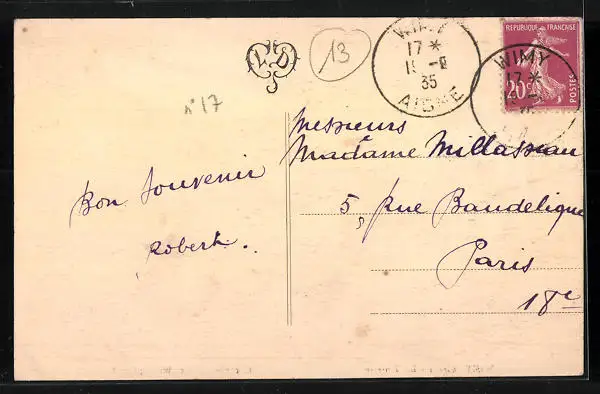 13
n° 17
WIMY
17 *
19 - 
35
AISNE
REPUBLIQUE FRANÇAISE
20c
POSTES
WIMY
17 *
Bon Souvenir
Robert.
Messieurs
Madame Millasseau
5, Rue Baudelique
Paris
18e